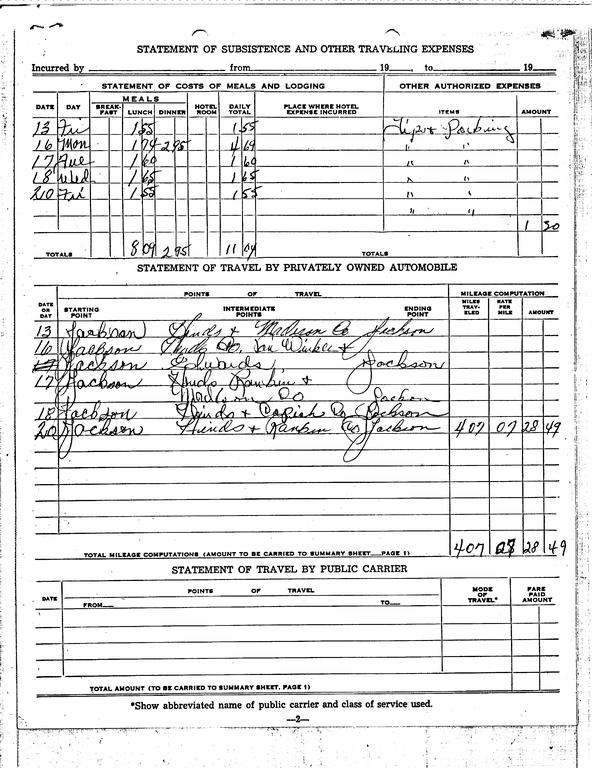 STATEMENT OF SUBSISTENCE AND OTHER TRAVELING EXPENSES
Incurred by from 19 to 19
STATEMENT OF COSTS OF MEALS AND LODGING OTHER AUTHORIZED EXPENSES
MEALS
DATE DAY BREAK-FAST LUNCH DINNER HOTEL ROOM DAILY TOTAL PLACE WHERE HOTEL EXPENSE INCURRED ITEMS AMOUNT
13 Fri 1 55 1 55 Tips & Parking
16 Mon 1 74 2 95 4 69 " "
17 Tue 1 60 1 60 " "
18 Wed 1 65 1 65 " "
20 Fri 1 55 1 55 " "
" "
1 30
TOTALS 8 09 2 95 11 04 TOTALS
STATEMENT OF TRAVEL BY PRIVATELY OWNED AUTOMOBILE
POINTS OF TRAVEL MILEAGE COMPUTATION
DATE OR DAY STARTING POINT INTERMEDIATE POINTS ENDING POINT MILES TRAV-ELED RATE PER MILE AMOUNT
13 Jackson Hinds & Madison Co Jackson
16 Jackson Hinds Co. Van Winkle &
Jackson Edwards, Jackson
17 Jackson Hinds Rankin &
Madison Co Jackson
18 Jackson Hinds & Copiah Co Jackson
20 Jackson Hinds & Rankin Co Jackson 407 07 28 49
TOTAL MILEAGE COMPUTATIONS (AMOUNT TO BE CARRIED TO SUMMARY SHEET PAGE 1) 407 28 49
STATEMENT OF TRAVEL BY PUBLIC CARRIER
DATE POINTS OF TRAVEL MODE OF TRAVEL* FARE PAID AMOUNT
FROM TO
TOTAL AMOUNT (TO BE CARRIED TO SUMMARY SHEET. PAGE 1)
*Show abbreviated name of public carrier and class of service used.
—2—